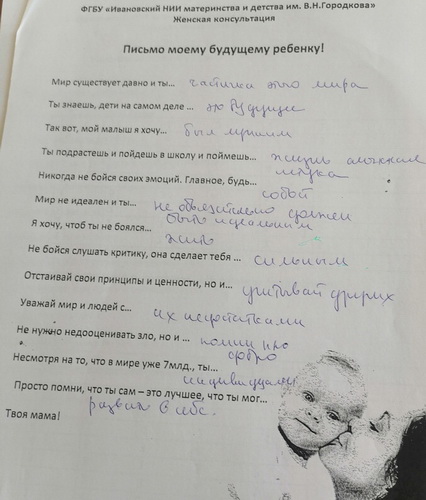 ФГБУ «Ивановский НИИ материнства и детства им. В.Н.Городкова»
Женская консультация
Письмо моему будущему ребенку!
Мир существует давно и ты... частичка этого мира
Ты знаешь, дети на самом деле ... это будущее
Так вот, мой малыш я хочу... был лучшим
Ты подрастешь и пойдешь в школу и поймешь... жизнь сложная
штука
Никогда не бойся своих эмоций. Главное, будь...
собой
Мир не идеален и ты... не обязательно должен
быть идеальным
Я хочу, чтоб ты не боялся...
жить
Не бойся слушать критику, она сделает тебя ... сильным
Отстаивай свои принципы и ценности, но и... учитывай других
Уважай мир и людей с...
их недостатками
Не нужно недооценивать зло, но и ... помни про
добро
Несмотря на то, что в мире уже 7млд., ты...
индивидуален
Просто помни, что ты сам – это лучшее, что ты мог...
развить в себе.
Твоя мама!